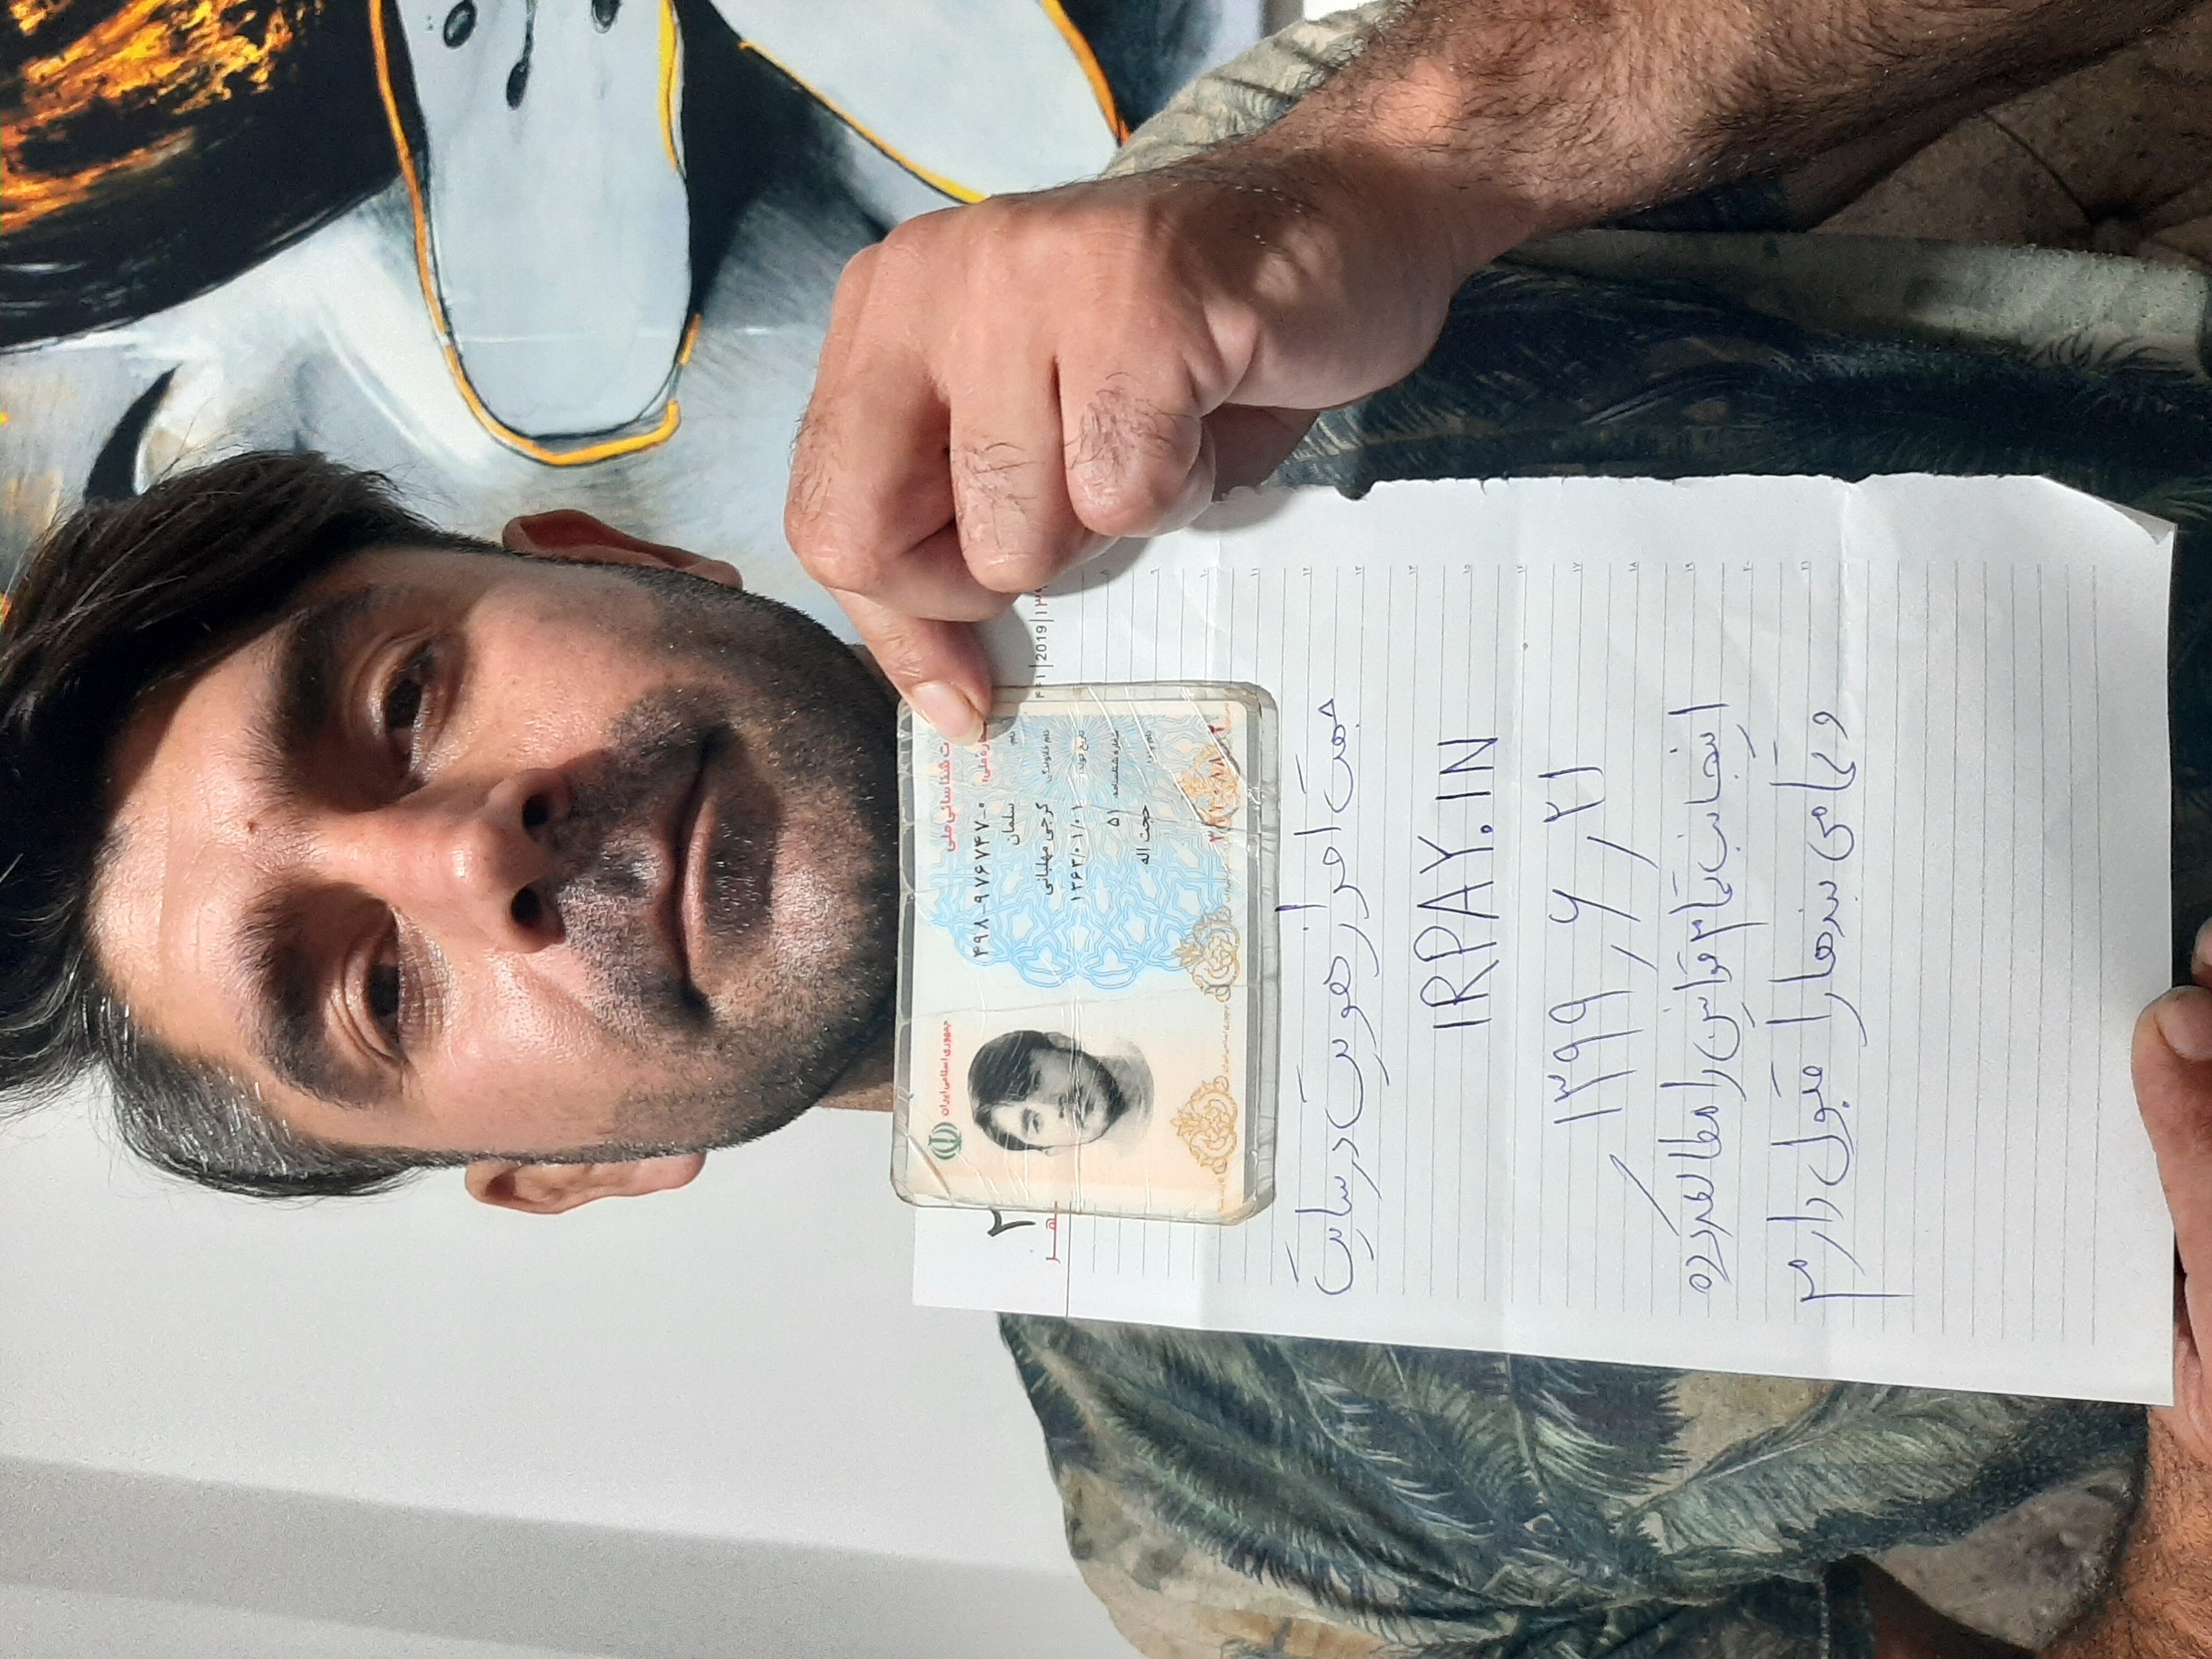 جمهوری اسلامی ایران شناسائی ملی
۴۹۸-۹۷۶۷۴۷-۰
نام: سلمان
نام خانوادگی: گرجی مهلبانی
تاریخ تولد: ۱۳۶۳/۰۱/۰۱
شماره شناسنامه: ۵۱
نام پدر: حجت اله
2019
جهت احراز هویت در سایت
IRPAY.IN
۱۳۹۹/۶/۲۱
اینجانب تمام قوانین را مطالعه کرده
و تمامی بندها را قبول دارم
۹
۱۰
۱۱
۱۲
۱۳
۱۴
۱۵
۱۶
۱۷
۱۸
۱۹
۲۰
۲۱